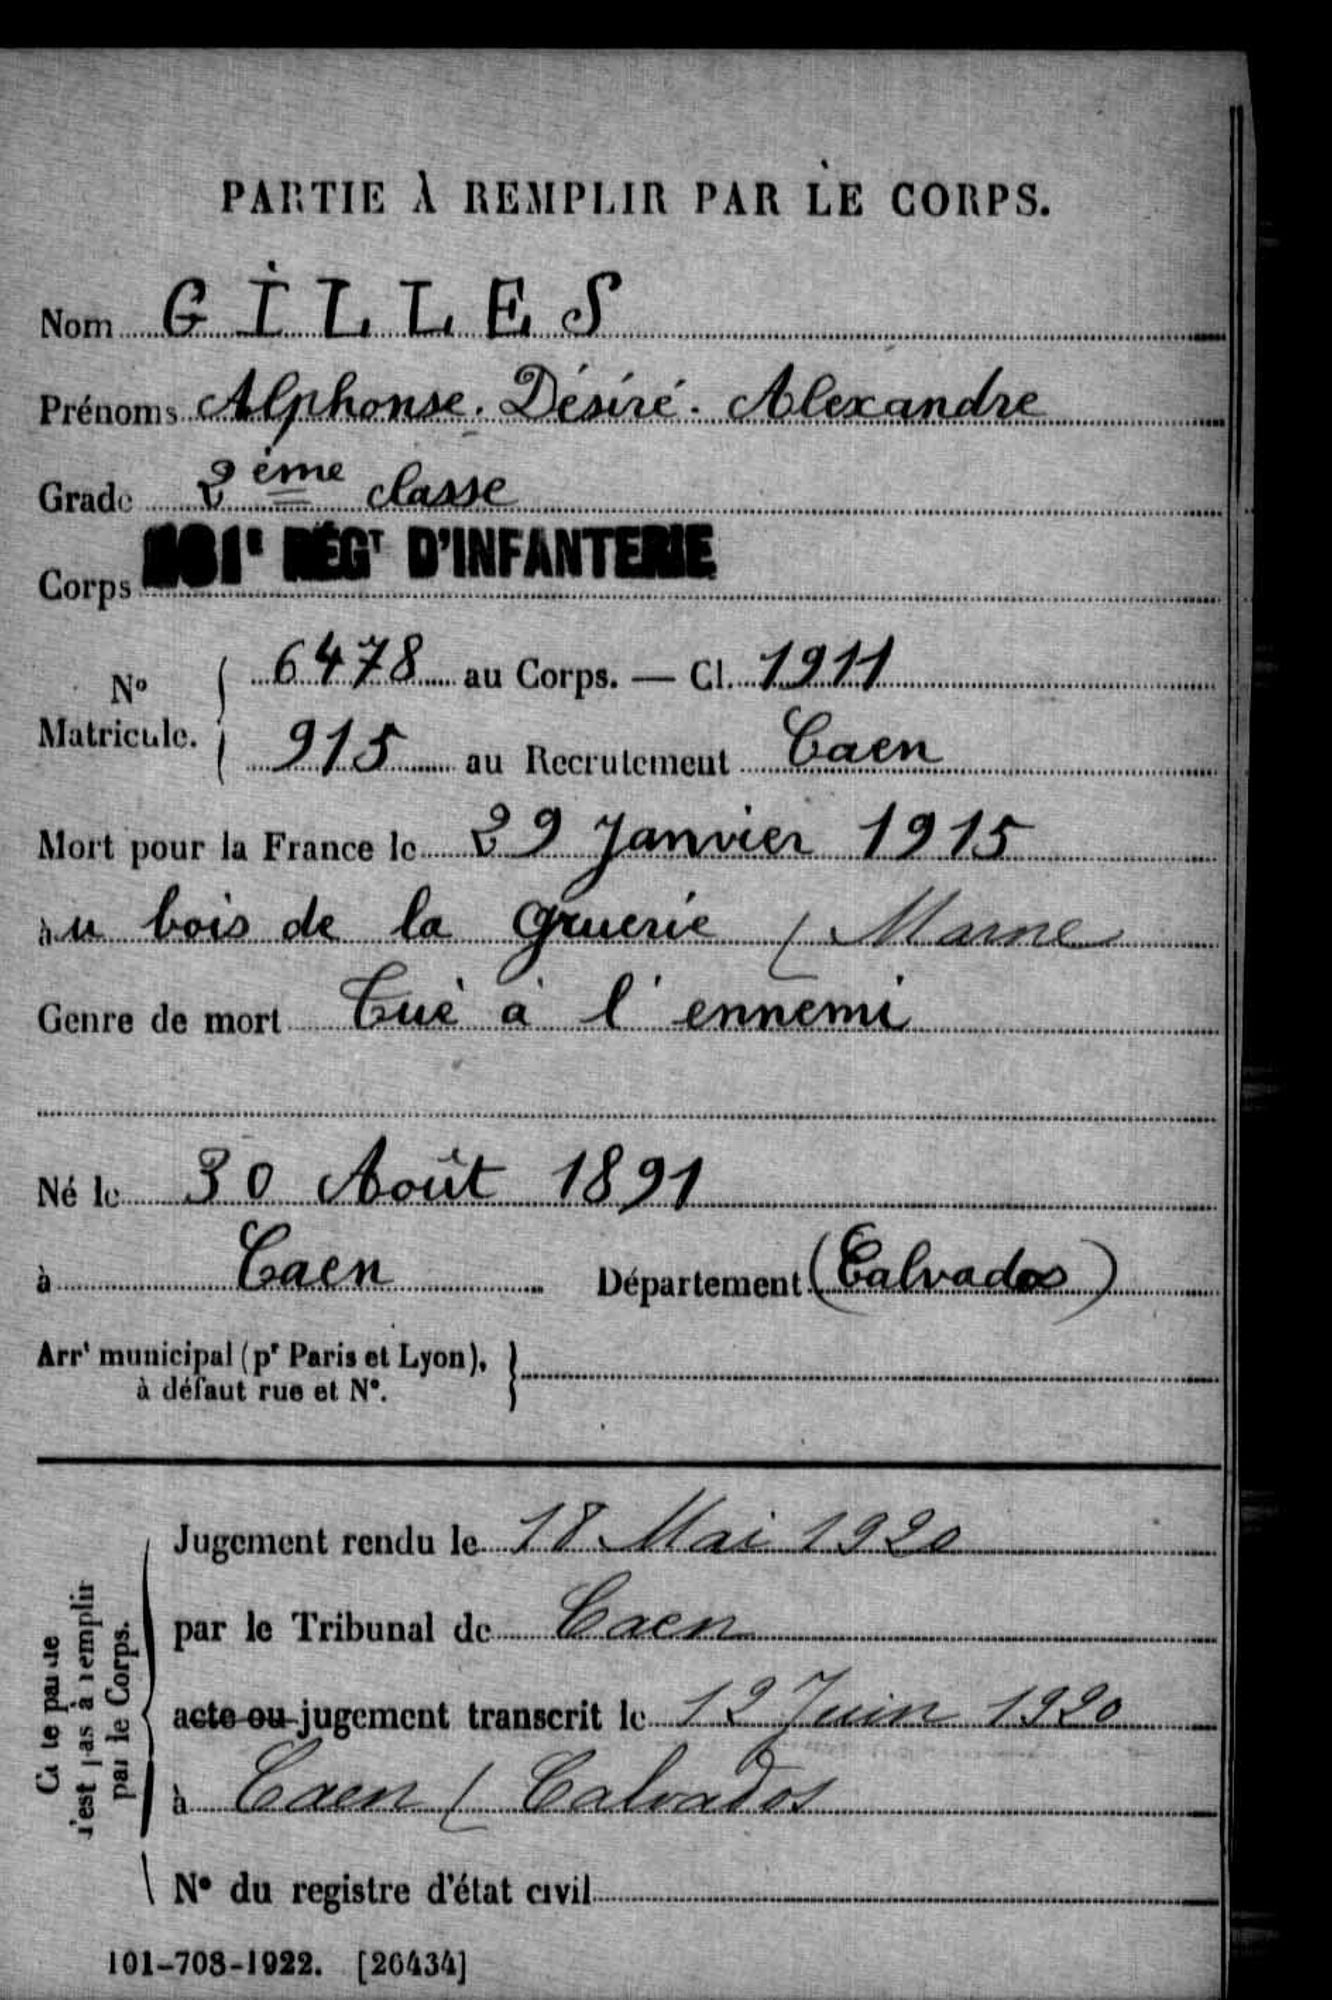 PARTIE À REMPLIR PAR LE CORPS.
Nom GILLES
Prénoms Alphonse. Désiré. Alexandre
Grade 2ème classe
Corps RÉGT D'INFANTERIE
N° Matricule. { 6478 au Corps. — Cl. 1911
915 au Recrutement Caen
Mort pour la France le 29 Janvier 1915
au bois de la Gruerie ( Marne
Genre de mort Tué à l'ennemi
Né le 30 Août 1891
à Caen Département (Calvados)
Arrt municipal (pr Paris et Lyon), à défaut rue et N°. }
Jugement rendu le 18 Mai 1920
par le Tribunal de Caen
acte ou jugement transcrit le 12 Juin 1920
à Caen ( Calvados
N° du registre d'état civil
Cette partie n'est pas à remplir par le Corps.
101-708-1922. [26434]